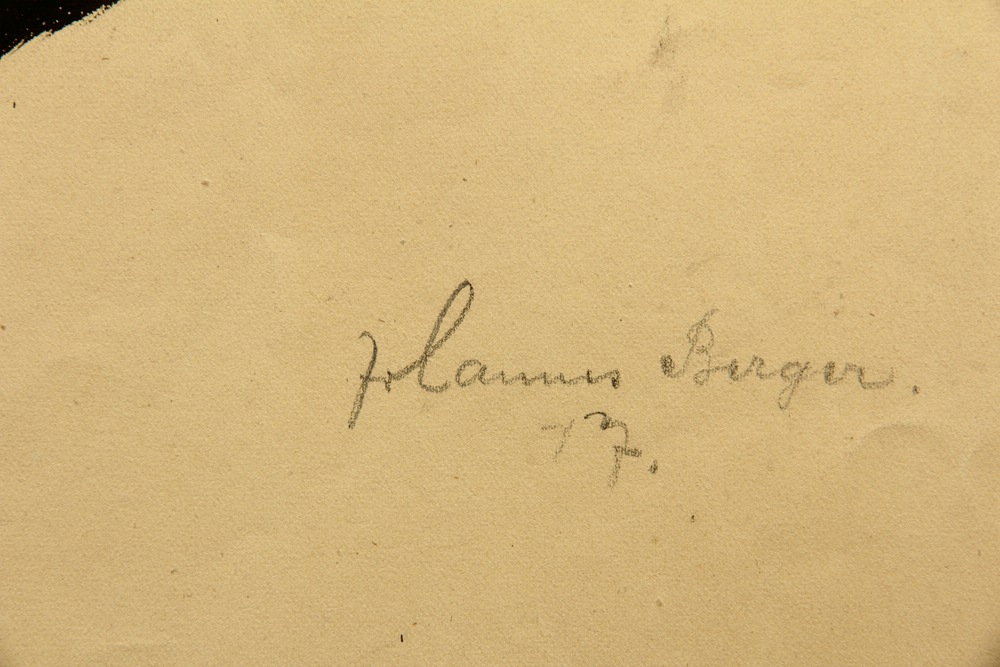 Johannes Berger.
17.